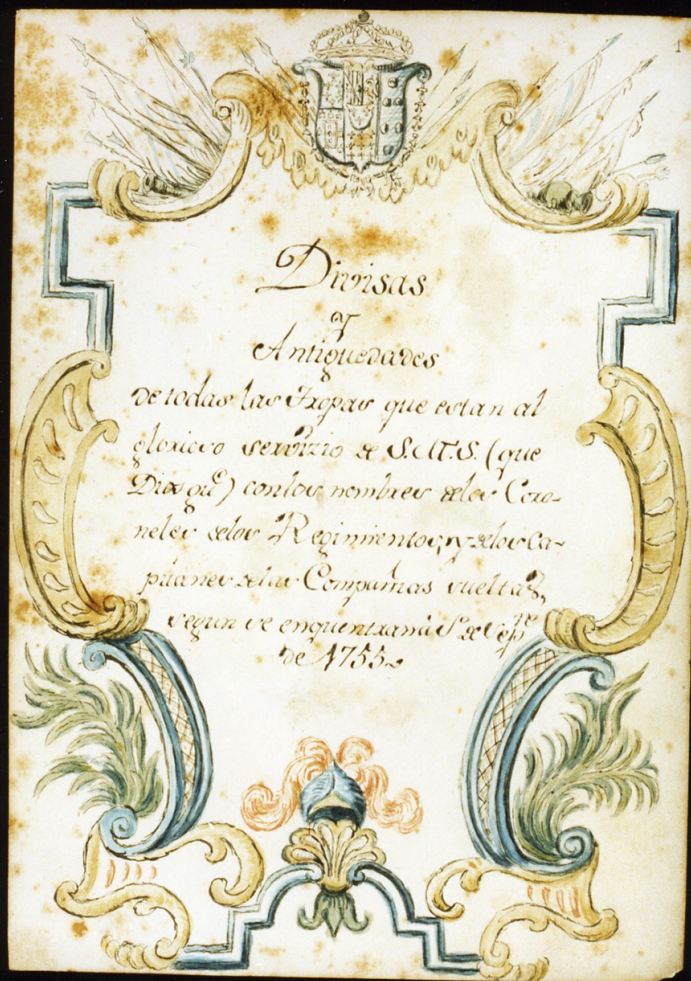 1
Divisas
Y
Antiguedades
de todas las Tropas que estan al
glorioso servizio de S.M.S. (que
Dios gue) con los nombres de los Coro-
neles de los Regimientos, y de los Ca-
pitanes de las Compañias sueltas,
segun se enquentran à de Sepre
de 1755